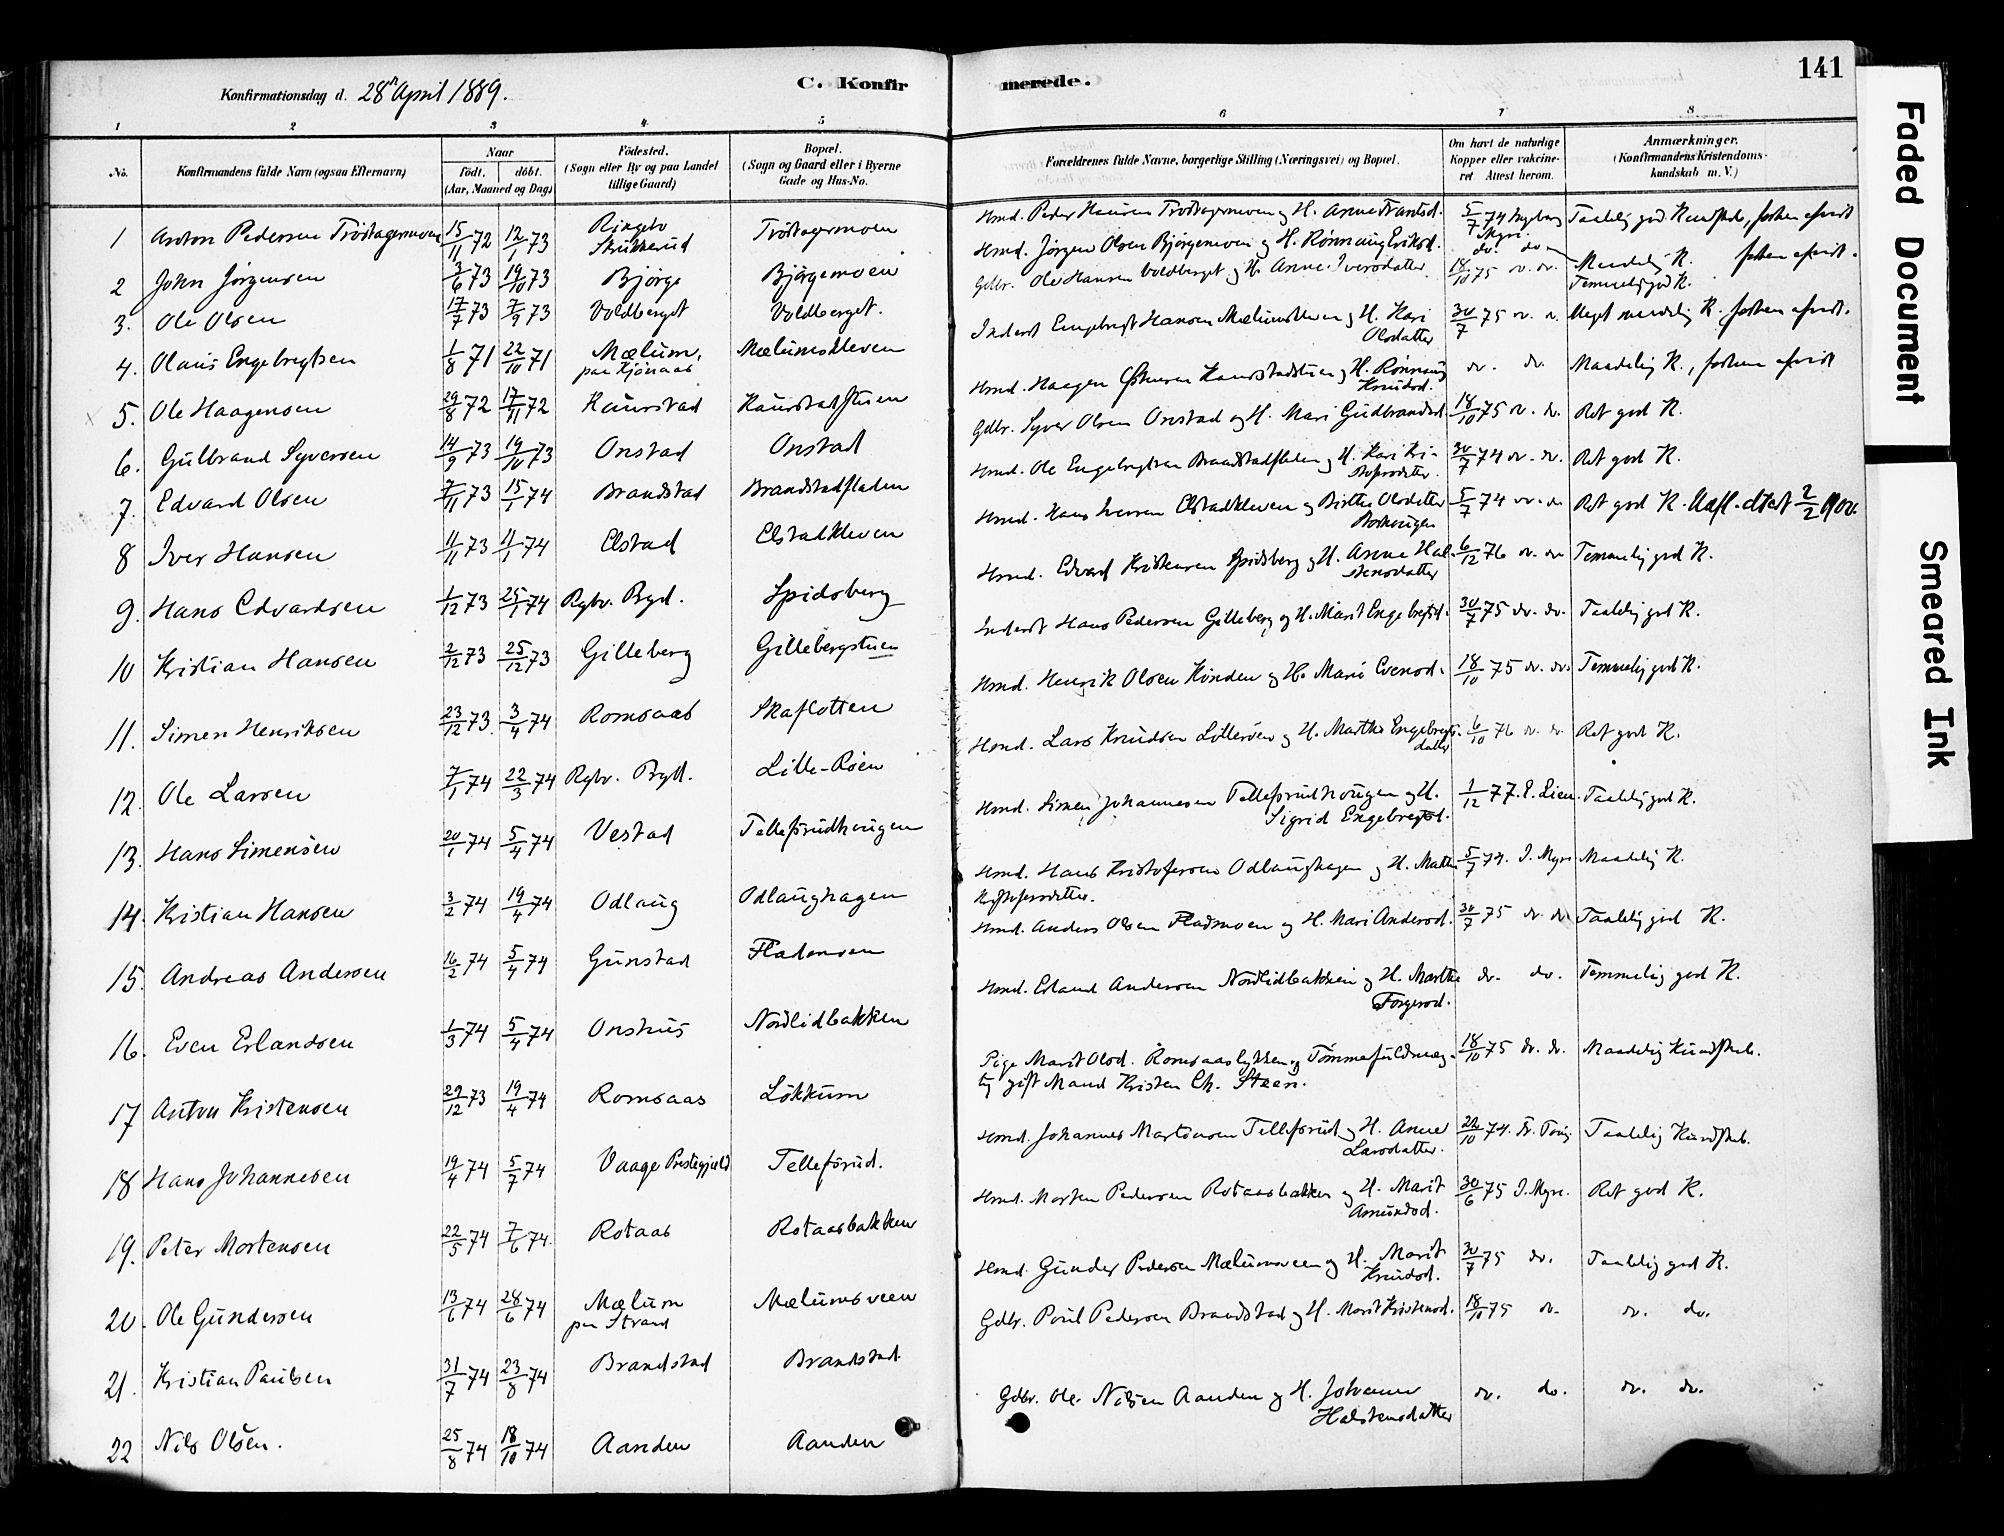 Konfirmationsdag d. 28 April 1889.
C. Konfir merede.
141
Faded Document
Smeared Ink
1 2 3 4 5 6 7 8
No.
Konfirmandens fulde Navn (ogsaa Efternavn)
Naar
födt. döbt.
(Aar, Maaned og Dag)
Födested.
(Sogn eller By og paa Landet
tillige Gaard)
Bopæl.
(Sogn og Gaard eller i Byerne
Gade og Hus-No.
Forældrenes fulde Navne, borgerlige Stilling (Næringsvei) og Bopæl.
Om havt de naturlige
Kopper eller vakcine-
ret Attest herom.
Anmærkninger.
(Konfirmandens Kristendoms-
kundskab m. V.)
1 Anton Pedersen 15/11 72 12/1 73 Ringebo
2 John Jørgensen 3/6 73 19/10 73 Bjørge Bjørgemoen Hmd. Jørgen Olsen Bjørgemoen og H. Rønnaug Eriksd. do. do. Maadelig K.
3. Ole Olsen 17/7 73 7/9 73 Voldberget Voldberget. Gdbr. Ole Hansen Voldberget og H. Anne Iversdatter 18/10 75 do. do. Temmelig god K.
4. Olaus Engebregtsen 1/8 71 22/10 71 Mælum, Mælumskleven Inderst Engebregt Hansen Mælumskleven og H. Kari 30/7 75
Olsdatter
5. Ole Haagensen 29/8 72 17/11 72 Kaurstad Kaurstadstuen Hmd. Haagen Kaurstadstuen og H. Rønnaug do. do. Maadelig K.,
Knudsd.
6. Gulbrand Syversen 14/9 73 19/10 73 Onstad Onstad Gdbr. Syver Olsen Onstad og H. Mari Gudbrandsd. 18/10 75 do. do. Ret god K.
7. Edvard Olsen 7/11 73 15/1 74 Brandstad Brandstadfladen Hmd. Ole Engebregtsen Brandstadfladen og H. Kari Kri- 30/7 74 do. do. Ret god K.
stofersdatter.
8 Iver Hansen 11/11 73 11/1 74 Elstad Elstadkleven Hmd. Hans Iversen Elstadkleven og Birthe Olsdatter 5/7 74 do. do. Ret god K.
9. Hans Edvardsen 1/12 73 25/1 74 Rgbo. Bygd. Spidsberg Hmd. Edvard Kristensen Spidsberg og H. Anne Hal- 6/12 76 do. do. Temmelig god K.
stensdatter
10 Kristian Hansen 2/12 73 25/12 73 Gilleberg Gillebergstuen Inderst Hans Pedersen Gilleberg og H. Marit Engebregtsd. 30/7 75 do. do. Taalelig god K.
11. Simen Henriksen 23/12 73. 3/4 74 Romsaas Skaflotten Hmd. Henrik Olsen Kinden og H. Mari Evensd. 18/10 75 do. do. Temmelig god K.
12. Ole Larsen 7/1 74 22/3 74 Rgbo. Bygd. Lille-Röen Hmd. Lars Knudsen Lilleröen og H. Marthe Engebregts- 6/10 76 do. do. Ret god K.
datter
13. Hans Simensen 20/1 74 5/4 74 Vestad Tellefsrudhougen Hmd. Simen Johannesen Tellefsrudhougen og H. 1/12 77. E. Lien. Taalelig god K.
Sigrid Engebregtsd.
14. Kristian Hansen 3/2 74 19/4 74 Odlaug Odlaughagen Hmd. Hans Kristofersen Odlaughagen og H. Mathe 5/7 74. I. Myre Maadelig K.
Kristofersdatter.
15. Andreas Andersen 16/2 74 5/4 74 Gunstad Fladmoen Hmd. Anders Olsen Fladmoen og H. Mari Andersd. 30/7 75 do. do. Taalelig god K.
16. Even Erlandsen 1/3 74 5/4 74 Onshus Nordlidbakken Hmd. Erland Andersen Nordlidbakken og H. Marthe do. do. Temmelig god K.
Torgersd.
17 Anton Kristensen 29/12 73 19/4 74 Romsaas Løkkum Pige Marit Olsd. Romsaaslykken og Tømmefuldmæg- 18/10 75 do. do. Maadelig Kundskab.
tig gift Mand Kristen Ch. Steen.
18 Hans Johannesen 19/4 74 5/7 74 Vaage Prestegjæld Tellefsrud. Hmd. Johannes Mortensen Tellefsrud og H. Anne 22/10 74. Taalelig Kundskab.
Larsdatter.
19. Peter Mortensen 22/5 74 7/6 74. Rotaas Rotaasbakken Hmd. Morten Pedersen Rotaasbakken og H. Marit 30/6 75 I. Myre. Ret god K.
Amundsd.
20. Ole Gundersen 13/6 74 28/6 74 Mælum Mælumsveen Hmd. Gunder Pedersen Mælumsveen og H. Marit 30/7 75 do. Taalelig god K.
paa Strand Knudsd.
21. Kristian Paulsen 31/7 74 23/8 74 Brandstad Brandstad Gdbr. Poul Pedersen Brandstad og H. Marit Kristensd. 18/10 75 do. do. do.
22 Nils Olsen. 25/8 74 18/10 74 Aanden Aanden Gdbr. Ole Nilsen Aanden og H. Johanne do. do. do. do.
Halstensdatter